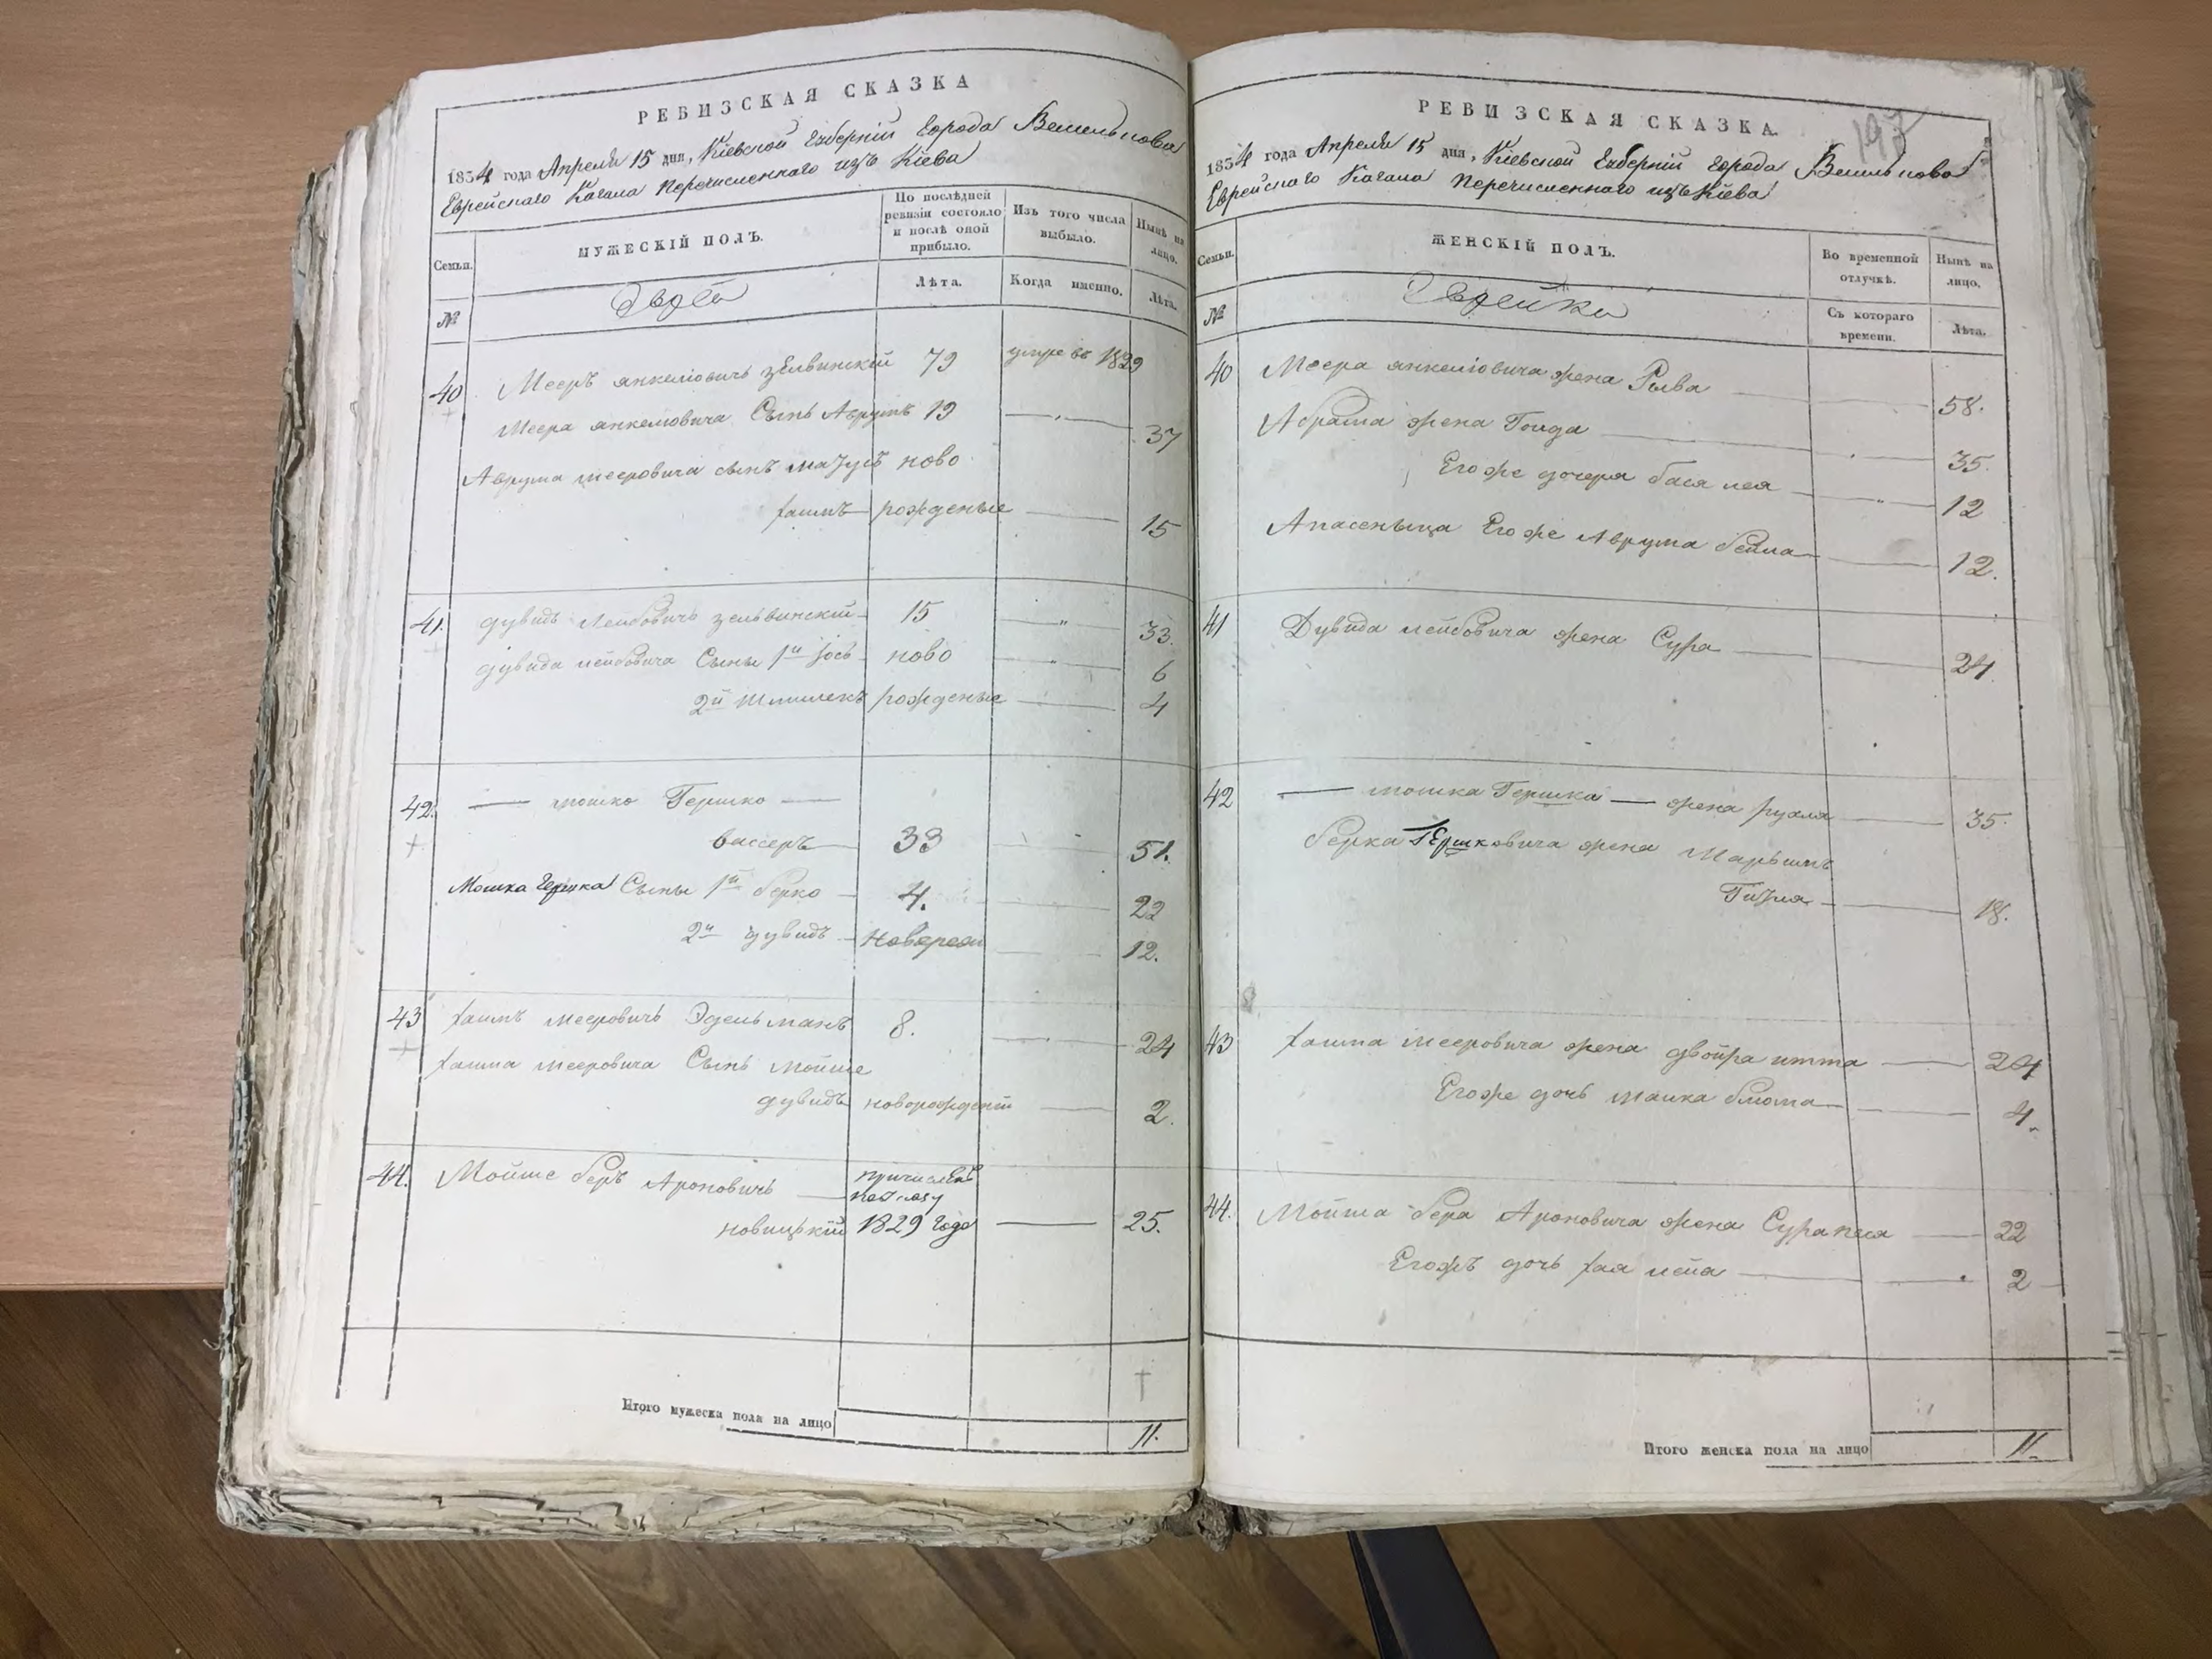 РЕВИЗСКАЯ СКАЗКА
1834 года Апреля 15 дня, Кіевской Губерніи города Василькова
Еврейскаго Кагала перечисленнаго изъ Кіева
Семьи.
МУЖЕСКІЙ ПОЛЪ.
По послѣдней ревизіи состояло и послѣ оной прибыло.
Изъ того числа выбыло.
Нынѣ на лицо.
№
Еврей
Лѣта.
Когда именно.
Лѣта.
40 Мееръ Янкеліовичъ Зельвинскій 79 умре въ 1829
Меера Янкеліовича Сынъ Аврумъ 19 37
Аврума Мееровича сынъ ново
хаимъ рожденые 15
41. дувидъ Лейбовичъ зельвинскій 15 33.
дувида лейбовича Сыны 1й Іось ново 6
2й Шмилекъ рожденые 4
42. мошко Гершко
вассеръ 33 51.
Мошка Гершка Сыны 1й берко 4. 22
2й дувидъ 12.
43 хаимъ мееровичъ Эдельманъ 8. 24
хаима мееровича Сынъ мойше
дувидъ новорожденій 2.
44. Мойше беръ Ароновичъ причисленъ
по указу
новицкій 1829 года 25.
Итого мужеска пола на лицо 11.
РЕВИЗСКАЯ СКАЗКА.
197
1834 года Апреля 15 дня, Кіевской Губерніи города Василькова
Еврейскаго Кагала перечисленнаго изъ Кіева
Семьи.
ЖЕНСКІЙ ПОЛЪ.
Во временной отлучкѣ.
Нынѣ на лицо.
№
Еврейки
Съ котораго времени.
Лѣта.
40 Меера янкеліовича жена Рыва 58.
Абрама жена Голда 35.
Егоже дочеря бася лея 12
Егоже Аврума бейла 12.
41 Дувида лейбовича жена Сура 24.
42 мошка Гершка жена рухля 35.
берка Гершковича жена Марьимъ
Гитля 18.
43 хаима мееровича жена двойра итта 24
Егоже дочь малка блюма 4.
44. Мойша бера Ароновича жена Сура песя 22
Егожъ дочь хая лейа 2
Итого женска пола на лицо 11.